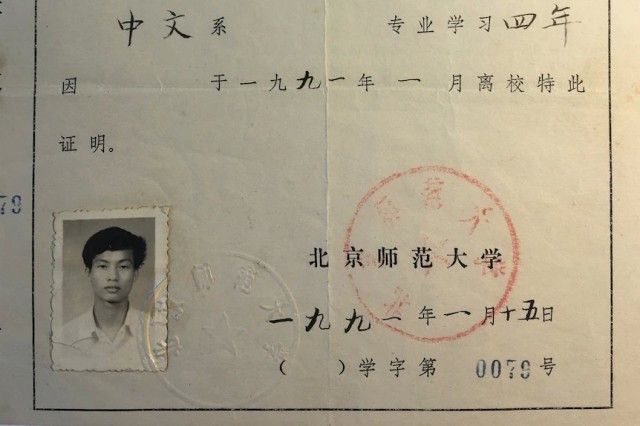 中文系 专业学习四年
因 于一九九一年一月离校特此
证明。
79
北京师范大学
一九九一年一月十五日
( )学字第 0079号